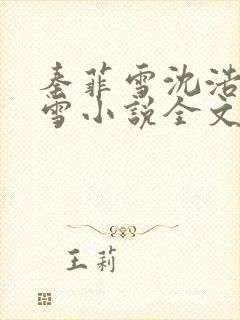 秦菲雪沈浩
雪小说全文
王莉